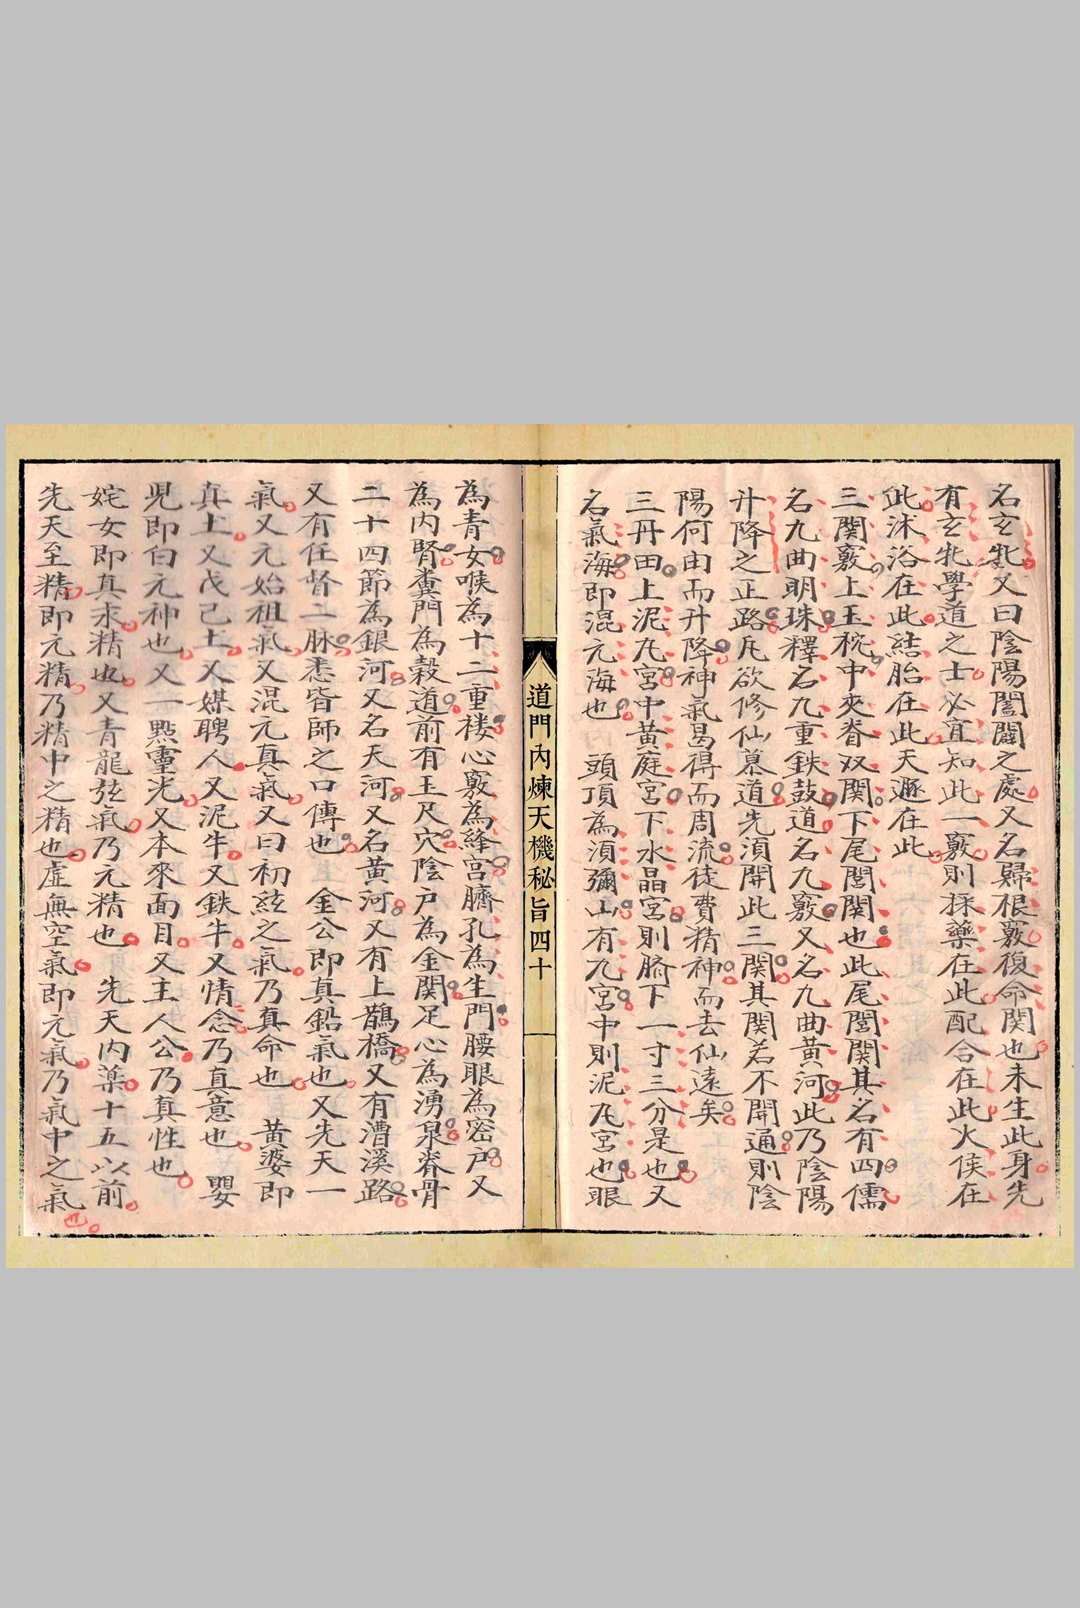 名玄牝又曰陰陽闔闢之處又名歸根竅復命関也未生此身先
有玄牝學道之士必宜知此一竅則採藥在此配合在此火侯在
此沭浴在此結胎在此天遯在此
三関竅上玉枕中夾脊双関下尾閭関也此尾閭関其名有四儒
名九曲明珠釋名九重鉄鼓道名九竅又名九曲黄河此乃陰陽
升降之正路凢欲修仙慕道先湏開此三関其関若不開通則陰
陽何由而升降神氣曷得而周流徒費精神而去仙遠矣
三丹田上泥凢宮中黄庭宮下水晶宮則臍下一寸三分是也又
名氣海即混元海也 頭頂為湏彌山有九宮中則泥凢宮也眼
道門內煉天機秘旨四十
為青女喉為十二重楼心竅為絳宮臍孔為生門腰眼為密戶又
為内腎糞門為榖道前有玉尺穴陰戶為金関足心為湧泉脊骨
二十四節為銀河又名天河又名黄河又有上鵲橋又有漕溪路
又有任督二脉悉皆師之口傳也 金公即真鉛氣也又先天一
氣又元始祖氣又混元真氣又曰初弦之氣乃真命也 黄婆即
真土又戊己土又媒聘人又泥牛又鉄牛又情念乃真意也 嬰
児即白元神也又一點靈光又本來面目又主人公乃真性也
姹女即真汞精也又青龍弦氣乃元精也 先天内藥十五以前
先天至精即元精乃精中之精也虚無空氣即元氣乃氣中之氣
也